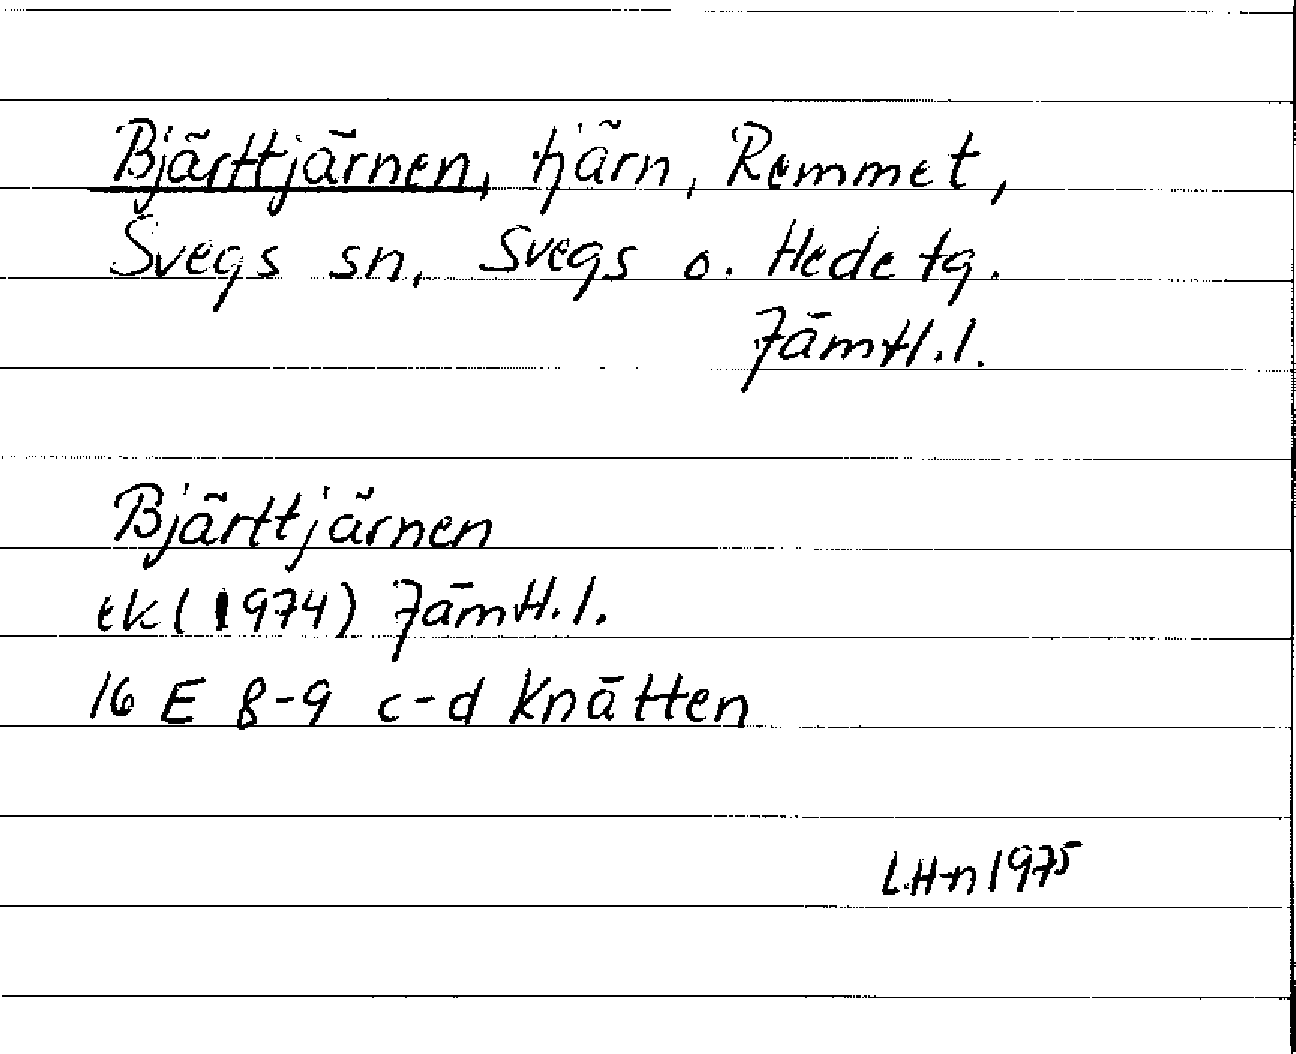 Bjärttjärnen, tjärn, Remmet,
Svegs sn, Svegs o. Hede tg.
Jämtl.l.
Bjärttjärnen
ek (1974) Jämtl.l.
16 E 8-9 c-d Knätten
L.H-n 1975